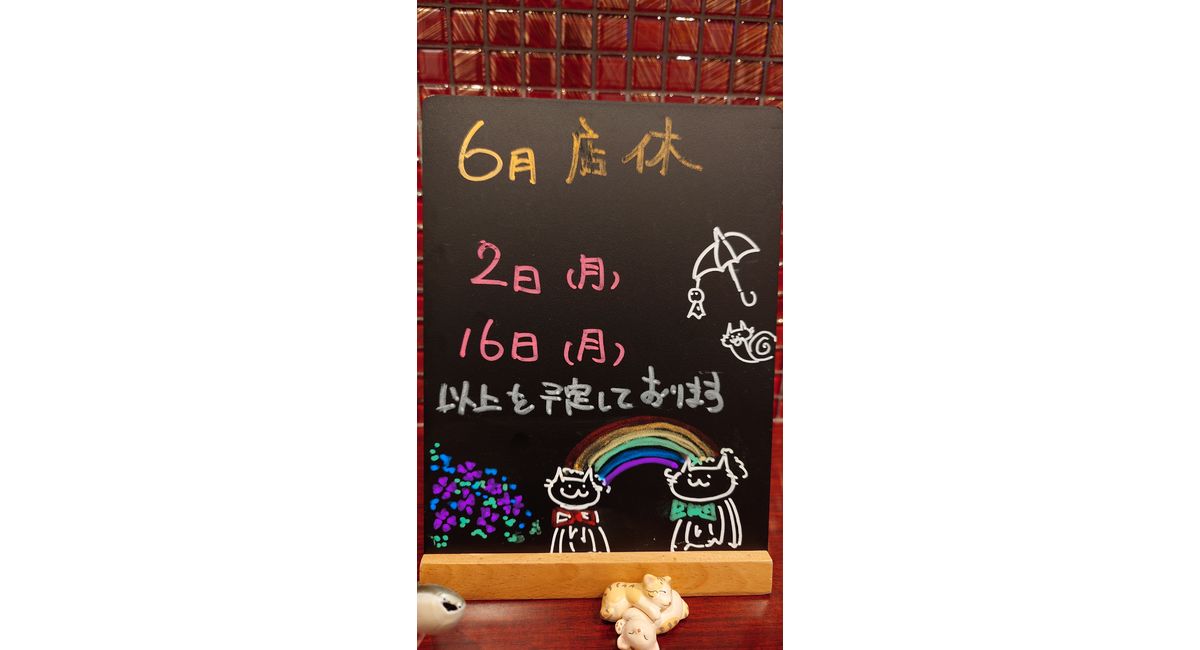 6月 店休
2日(月)
16日(月)
以上を予定しております